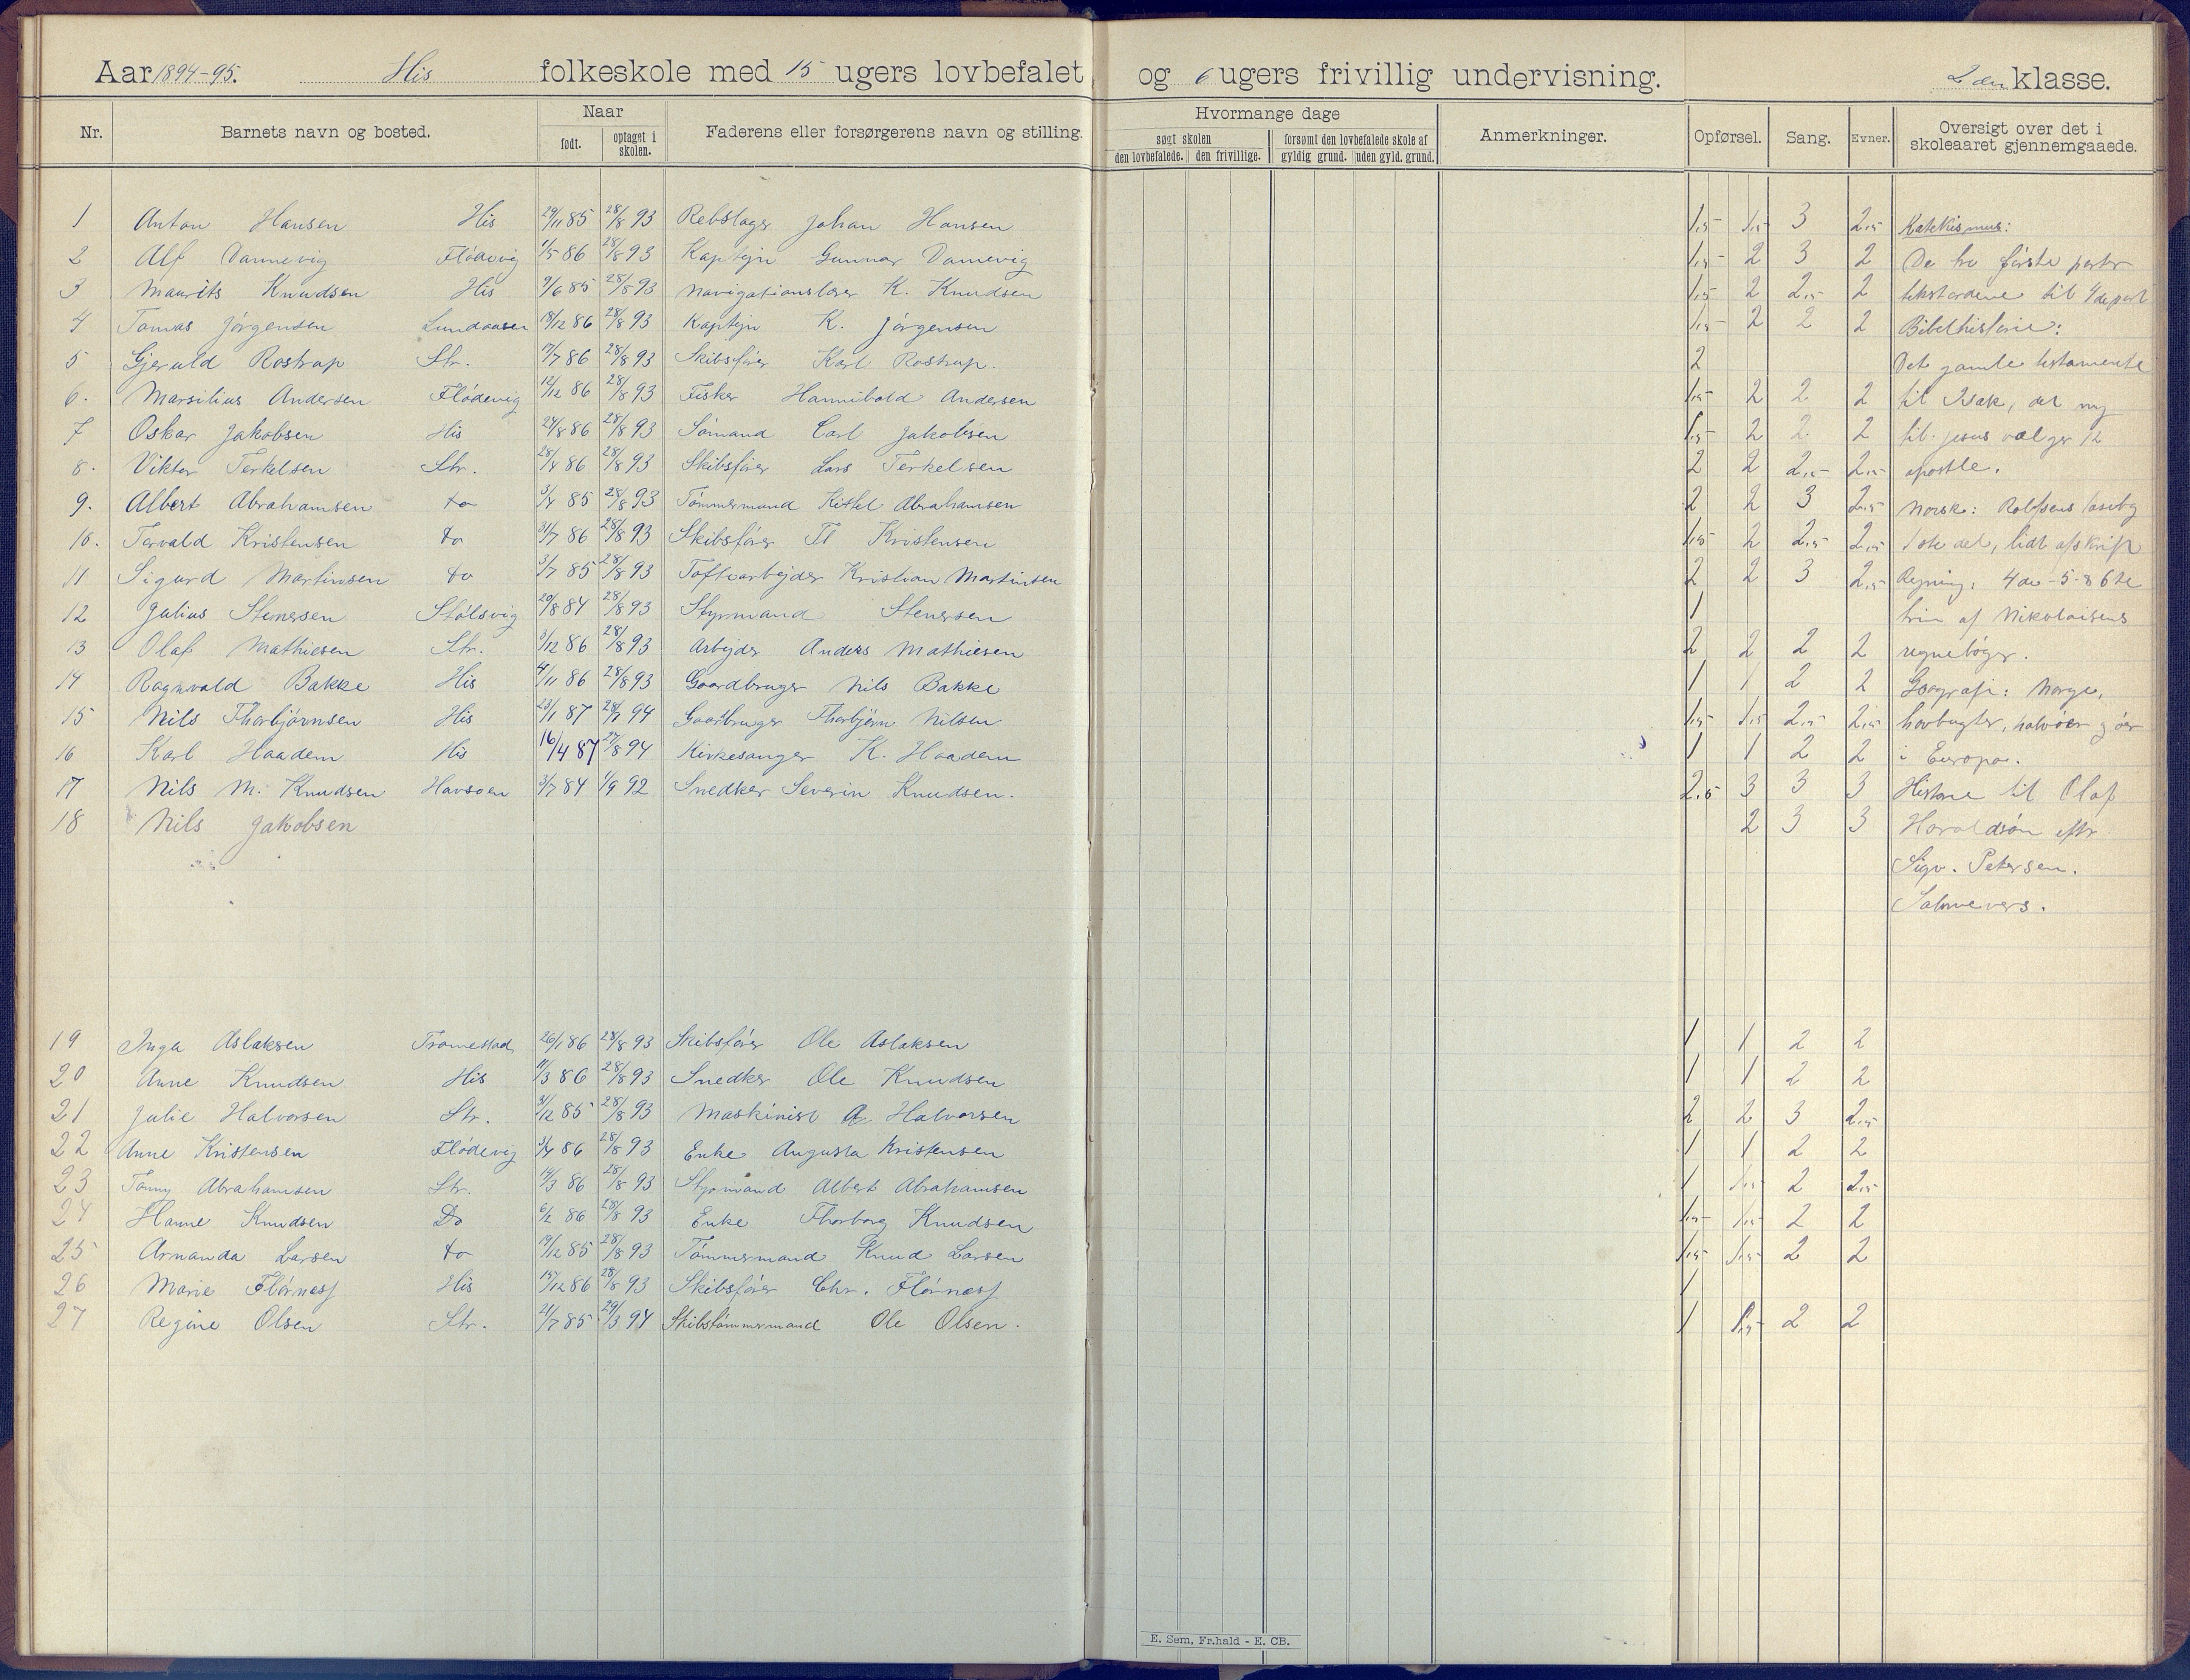 Aar 1894-95. His folkeskole med 15 ugers lovbefalet og 6 ugers frivillig undervisning. 2den klasse.
Nr. Barnets navn og bosted. Naar født. optaget i skolen. Faderens eller forsørgerens navn og stilling. Hvormange dage søgt skolen den lovbefalede. den frivillige. forsømt den lovbefalede skole af gyldig grund. uden gyld. grund. Anmerkninger. Opførsel. Sang. Evner. Oversigt over det i skoleaaret gjennemgaaede.
1 Anton Hansen His 29/11 85 28/8 93 Rebslager Johan Hansen 1,5 1,5 3 2,5 Katekismus:
2 Alf Dannevig Flødevig 1/5 86 28/8 93 Kaptejn Gunnar Dannevig 1,5 2 3 2 De tre første parter
3 Maurits Knudsen His 9/6 85 28/8 93 Navigationslærer K. Knudsen 1,5 2 2,5 2 tekstordene til 4de part
4 Tomas Jørgensen Lundaasen 18/12 86 28/8 93 Kaptejn K. Jørgensen 1,5 2 2 2 Bibelhistorie:
5 Gjeruld Rostrup Str. 17/7 86 28/8 93 Skibsfører Karl Rostrup. 2 Det gamle testamente
6. Marsilius Andersen Flødevig 12/12 86 28/8 93 Fisker Hannibald Andersen 1,5 2 2 2 til Isak, det ny
7 Oskar Jakobsen His 24/8 86 28/8 93 Sømand Carl Jakobsen 1,5 2 2 2 til Jesus vælger 12
8. Viktor Terkelsen Str. 28/4 86 28/8 93 Skibsfører Lars Terkelsen 2 2 2,5 2,5 apostle.
9. Albert Abrahamsen do 3/4 85 28/8 93 Tømmermand Kittel Abrahamsen 2 2 3 2,5 Norsk: Rolfsens læsebog
10. Torvald Kristensen do 31/7 86 28/8 93 Skibsfører Tl Kristensen 1,5 2 2,5 2,5 1ste del, lidt afskrift
11 Sigurd Martinsen do 3/7 85 28/8 93 Toftearbejder Kristian Martinsen 2 2 3 2,5 Regning: 4de - 5 - & 6te
12 Julius Stenersen Stølsvig 20/8 84 28/8 93 Styrmand Stenersen 1 trin af Nikolaisens
13 Olaf Mathiesen Str. 3/12 86 28/8 93 Arbejder Anders Mathiesen 2 2 2 2 regnebøger.
14 Ragnvald Bakke His 4/11 86 28/8 93 Gaardbruger Nils Bakke 1 1 2 2 Geografi: Norge,
15 Nils Thorbjørnsen His 23/1 87 28/8 94 Gaardbruger Thorbjørn Nilsen 1,5 1,5 2,5 2,5 havbugter, halvøer og øer
16 Karl Haadem His 16/4 87 27/8 94 Kirkesanger K. Haadem 1 1 2 2 i Europa.
17 Nils M. Knudsen Havsøen 3/7 84 1/9 92 Snedker Severin Knudsen. 2.5 3 3 3 Historie til Olaf
18 Nils Jakobsen 2 3 3 Haraldsøn efter
Sigv. Petersen.
Salmevers.
19 Inga Aslaksen Tromestad 26/1 86 28/8 93 Skibsfører Ole Aslaksen 1 1 2 2
20 Anne Knudsen His 11/3 86 28/8 93 Snedker Ole Knudsen 1 1 2 2
21 Julie Halvorsen Str. 31/12 85 28/8 93 Maskinist A. Halvorsen 2 2 3 2,5
22 Anne Kristensen Flødevig 3/4 86 28/8 93 Enke Augusta Kristensen 1 1 2 2
23 Tonny Abrahamsen Str. 14/3 86 28/8 93 Styrmand Albert Abrahamsen 1 1,5 2 2,5
24 Hanne Knudsen Do 6/2 86 28/8 93 Enke Thorborg Knudsen 1,5 1,5 2 2
25 Amanda Larsen do 19/12 85 28/8 93 Tømmermand Knud Larsen 1,5 1,5 2 2
26 Marie Flørness His 15/12 86 28/8 93 Skibsfører Chr. Flørness 1
27 Regine Olsen Str. 21/7 85 29/3 94 Skibstømmermand Ole Olsen. 1 1,5 2 2
E. Sem, Fr.hald - E. CB.